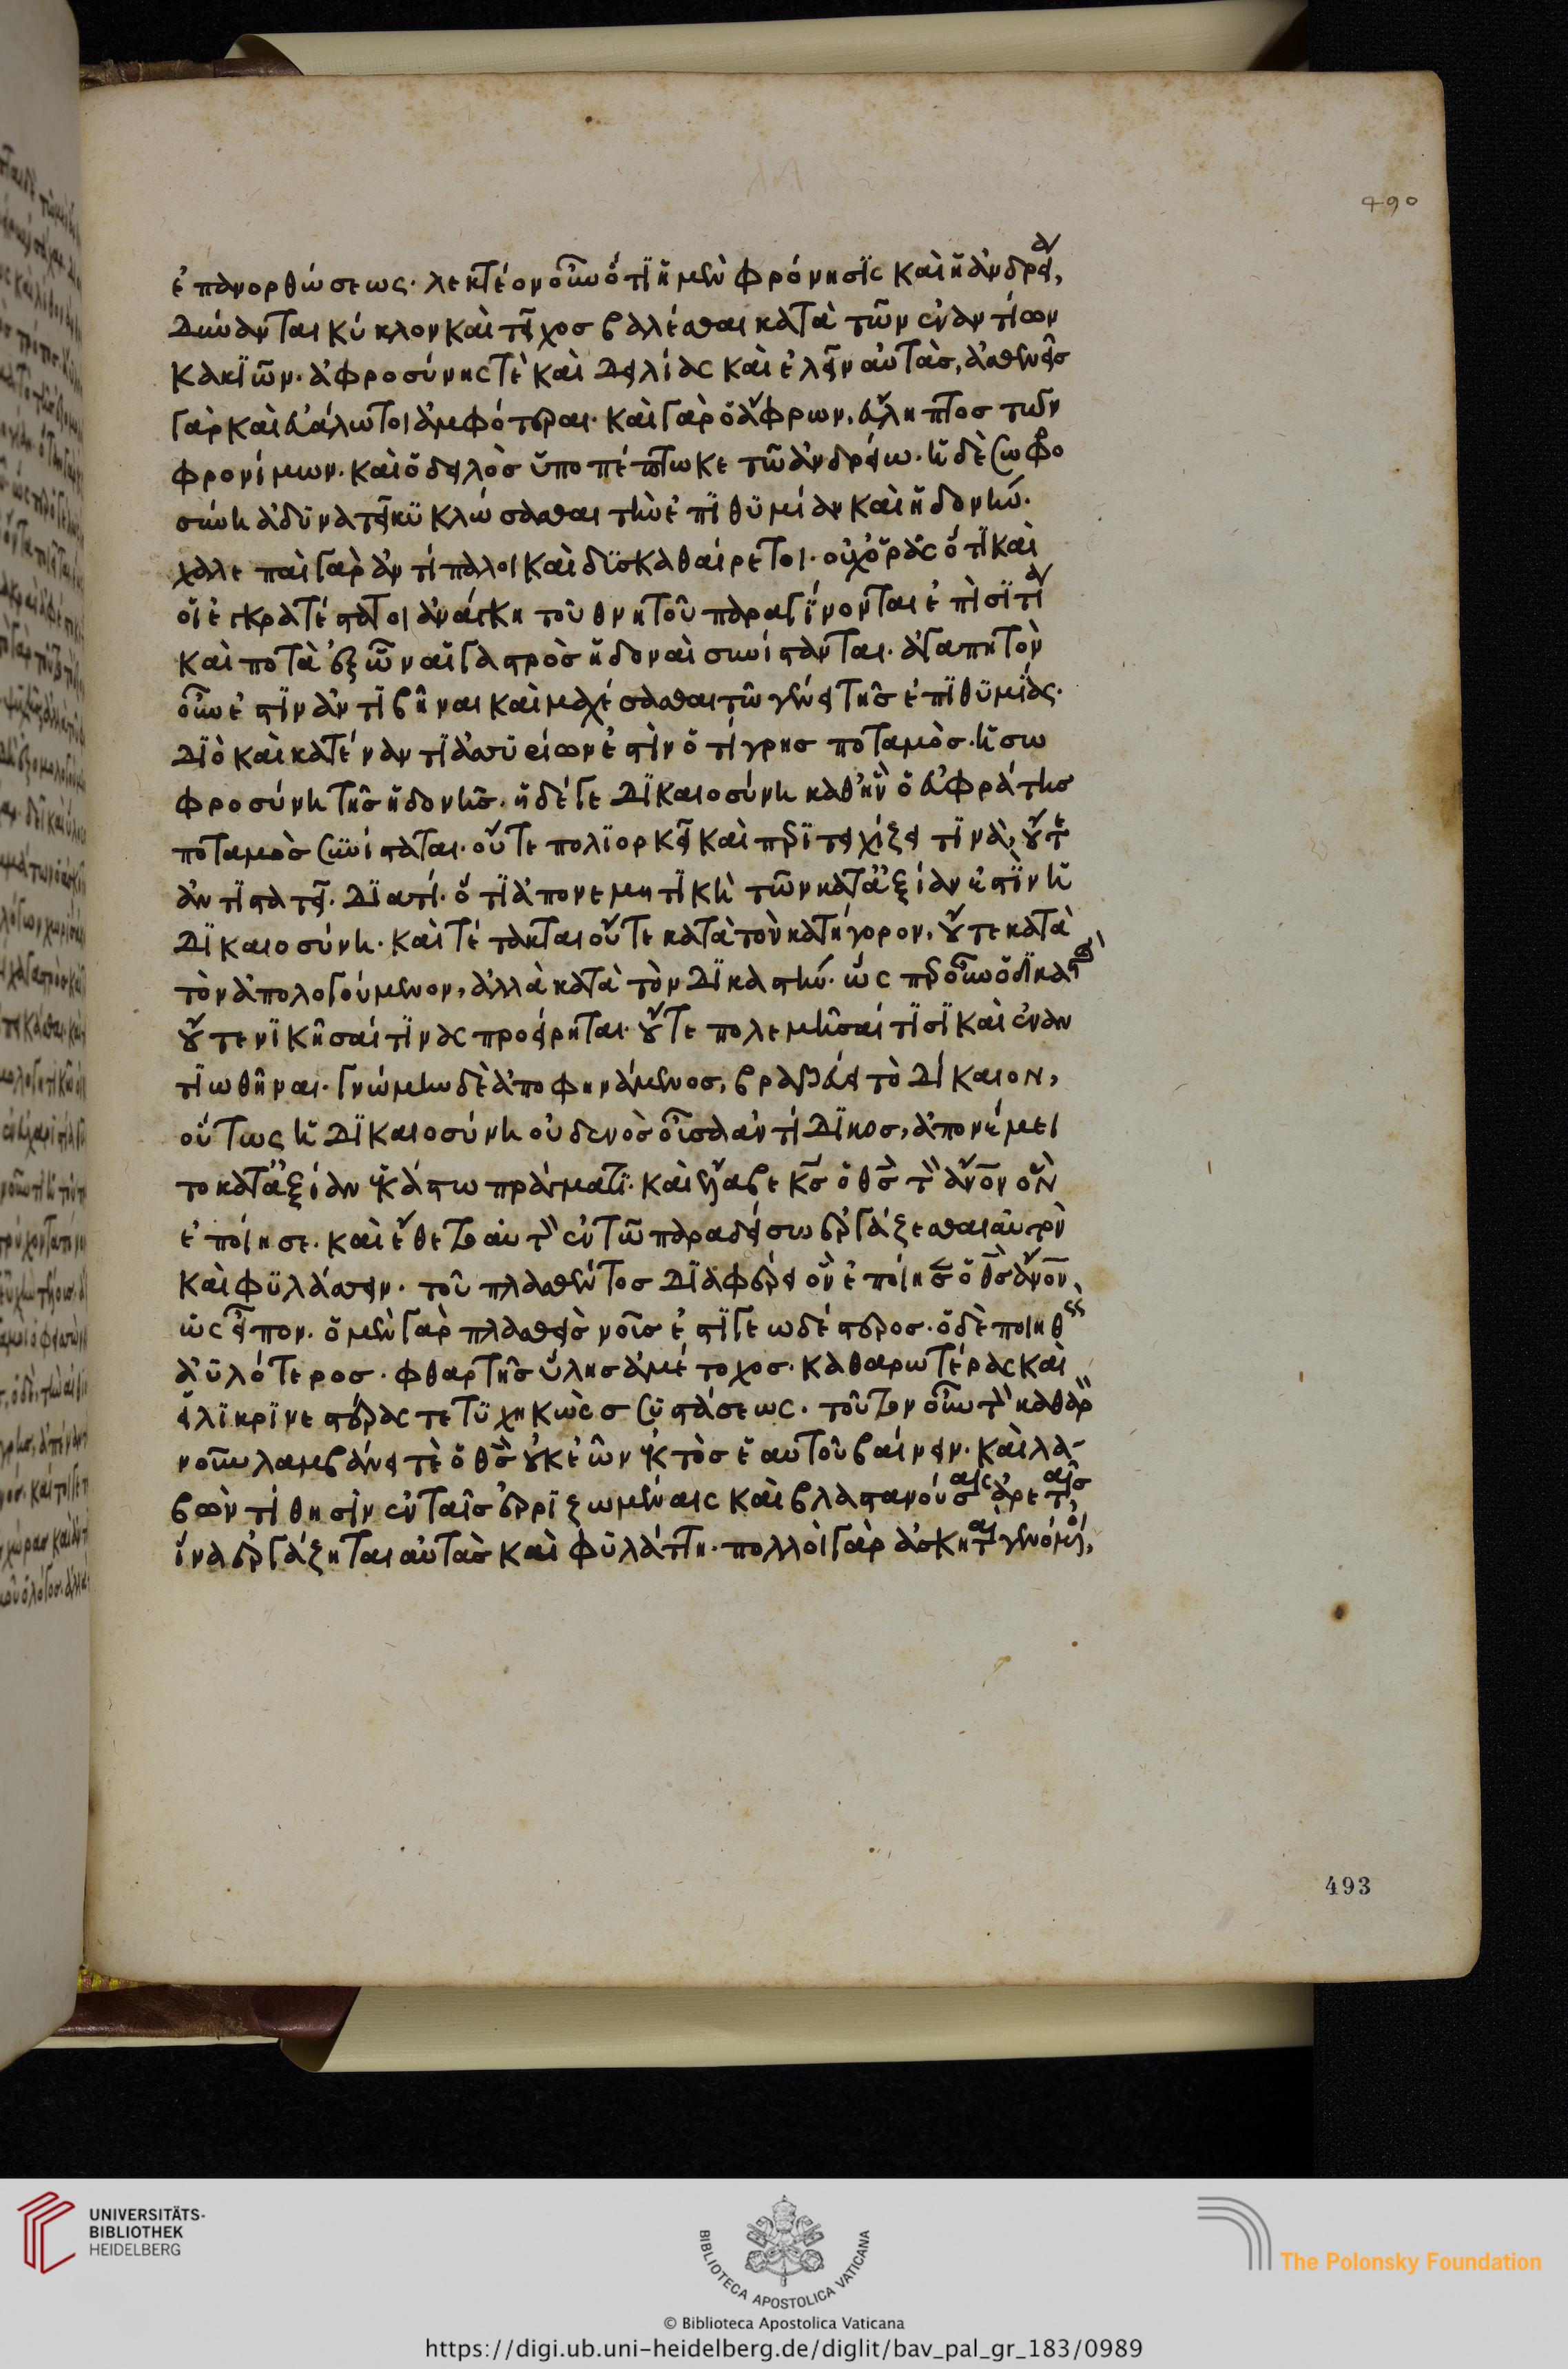 ἐπανορθώσεως. λεκτέον οὖν ὅτι ἡ μὲν φρόνησις καὶ ἡ ἀνδρεία,
δύνανται κύκλον καὶ τεῖχος βαλέσθαι κατὰ τῶν ἐναντίων
κακιῶν. ἀφροσύνης τὲ καὶ δειλίας καὶ ἐλεῖν αὐτάς, ἀσθενεῖς
γὰρ καὶ εὐάλωτοι ἀμφότεραι. καὶ γὰρ ὁ ἄφρων, εὔληπτος τῶν
φρονίμων. καὶ ὁ δειλὸς ὑποπέπτωκε τῶ ἀνδρείω. ἡ δὲ σωφρο
σύνη ἀδυνατεῖ κυκλώσασθαι τὴν ἐπιθυμίαν καὶ ἡδονήν.
χαλεπαὶ γὰρ ἀντίπαλοι καὶ δυσκαθαίρετοι. οὐχ ὁρᾶς ὅτι καὶ
οἱ ἐγκρατέστατοι ἀνάγκη τοῦ θνητοῦ παραγίνονται ἐπὶ σιτία
καὶ ποτὰ ἐξ ὧν αἱ γαστρὸς ἡδοναὶ συνίστανται. ἀγαπητὸν
οὖν ἐστὶν ἀντιβῆναι καὶ μαχέσασθαι τῶ γένει τῆς ἐπιθυμίας.
διὸ καὶ κατέναντι ἀσσυρίων ἐστὶν ὁ τίγρης ποταμὸς. ἡ σω
φροσύνη τῆς ἡδονῆς. ἡ δέ γε δικαιοσύνη καθ' ἣν ὁ εὐφράτης
ποταμὸς συνίσταται. οὔτε πολιορκεῖ καὶ περιτειχίζει τινὰ, οὔτε
ἀντιστατεῖ. διατί. ὅτι ἀπονεμητικὴ τῶν κατ' ἀξίαν ἐστὶν ἡ
δικαιοσύνη. καὶ τέτακται οὔτε κατὰ τὸν κατήγορον, οὔτε κατὰ
τὸν ἀπολογούμενον, ἀλλὰ κατὰ τὸν δικαστήν. ὥσπερ οὖν ὁ δικαστὴς
οὔτε νικῆσαί τινας προείρηται. οὔτε πολεμῆσαί τισι καὶ ἐναν
τιωθῆναι. γνώμην δὲ ἀποφηνάμενος, βραβεύει τὸ δίκαιον,
οὕτως ἡ δικαιοσύνη οὐδενὸς οὖσα ἀντίδικος, ἀπονέμει
το κατ' ἀξίαν ἑκάστω πράγματι. καὶ ἔλαβε κς ὁ θς τὸν ἄνον ὃν
ἐποίησε. καὶ ἔθετο αὐτὸν ἐν τῶ παραδείσω ἐργάζεσθαι αὐτὸν
καὶ φυλάσσειν. τοῦ πλασθέντος διαφέρει ὃν ἐποίησεν ὁ θς ἄνον,
ὡς εἶπον. ὁ μὲν γὰρ πλασθεὶς νοῦς ἐστὶ γεωδέστερος. ὁ δὲ ποιηθεὶς
ἀϋλότερος. φθαρτῆς ὕλης ἀμέτοχος. καθαρωτέρας καὶ
εἰλικρινεστέρας τετυχηκὼς συστάσεως. τοῦτον οὖν τὸν καθαρὸν
νοῦν λαμβάνει τὲ ὁ θς οὐκ ἐῶν ἐκτὸς ἑαυτοῦ βαίνειν. καὶ λα-
βὼν τίθησιν ἐν ταῖς ἐρριζωμέναις καὶ βλαστανούσαις ἀρεταῖς,
ἵνα ἐργάζηται αὐτὰς καὶ φυλάττη. πολλοὶ γὰρ ἀσκηταὶ γενόμενοι,
490
493
UNIVERSITÄTS-
BIBLIOTHEK
HEIDELBERG
BIBLIOTECA APOSTOLICA VATICANA
The Polonsky Foundation
© Biblioteca Apostolica Vaticana
https://digi.ub.uni-heidelberg.de/diglit/bav_pal_gr_183/0989